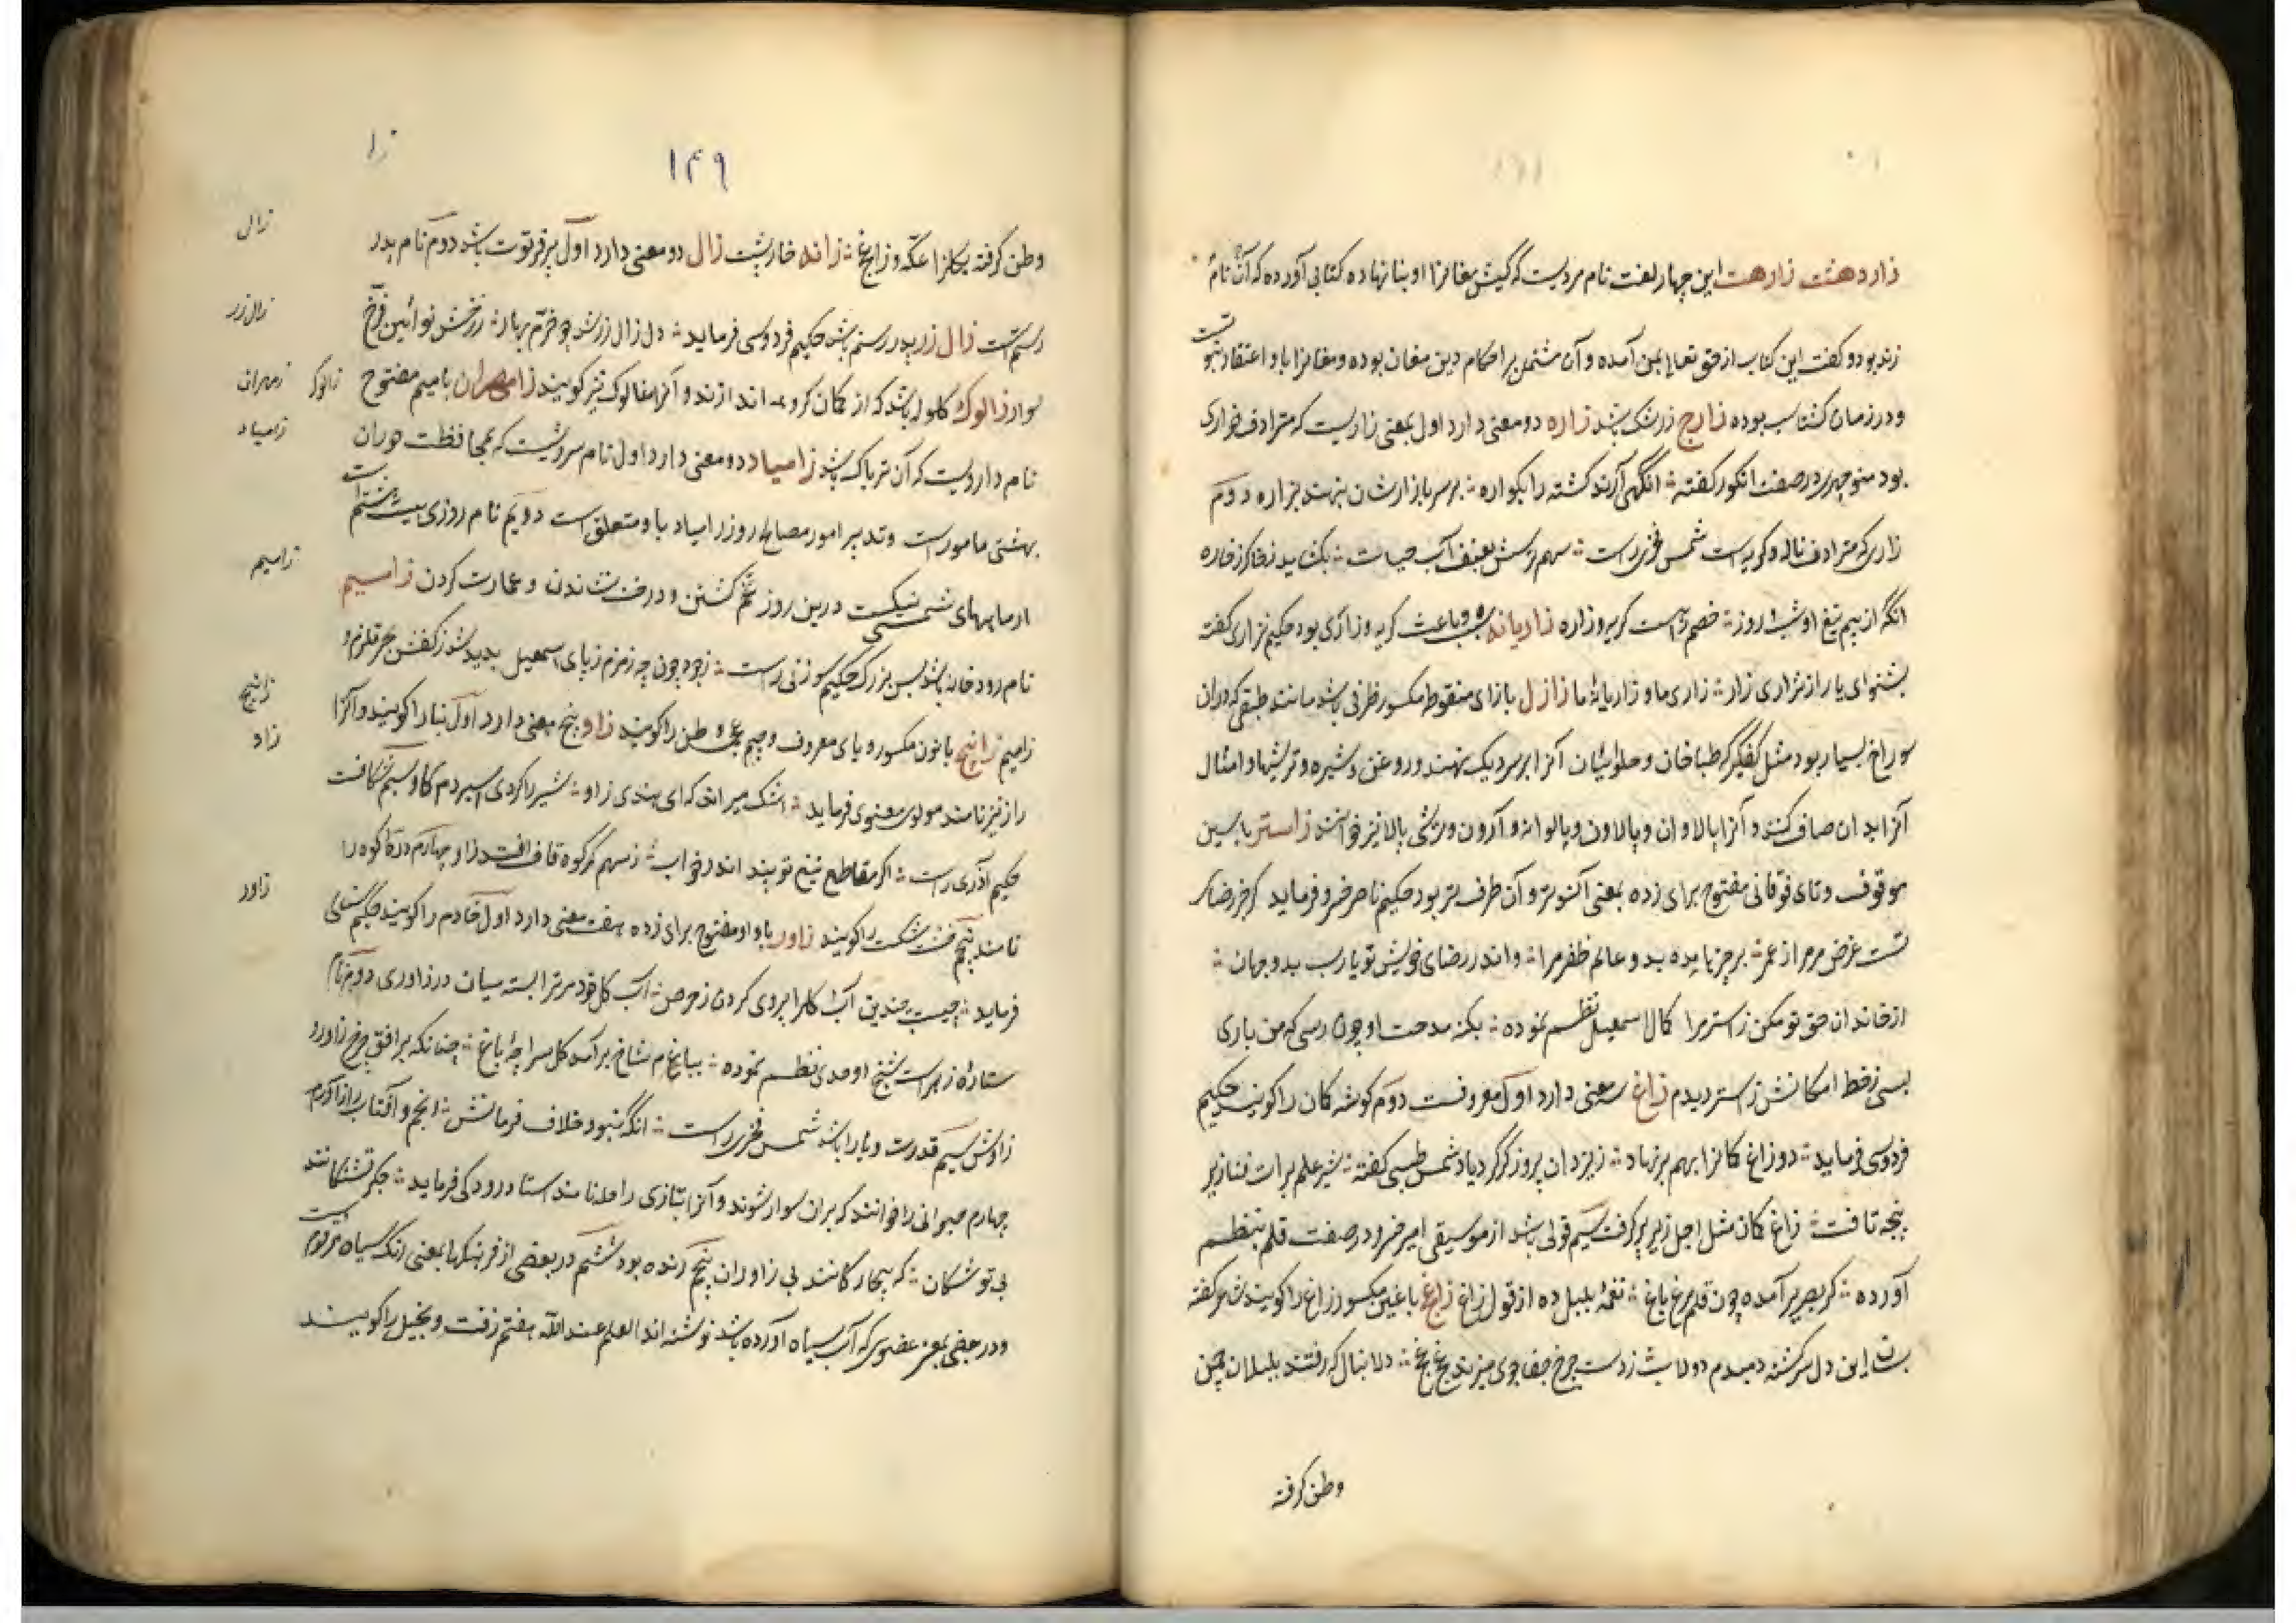 زاردهشت زارهشت این چهار لغت نام مردیست که کیش مغانرا او بنا نهاده کتابی آورده که آن نام
زند بود و گفت این کتاب از حق تعالی بمن آمده و آن مشتمل بر احکام دین مغان بوده و مغانرا باو اعتقاد
ودر زمان کشتاسب بوده زارج زرشک باشد زاره دو معنی دارد اول بمعنی زاریست که مترادف خواری
بود منوچهری در صفت انکور کفته آنکهی آرند کشته را بکواره بر سر بازارشان بنهند بزاره دوم
زاری که مترادف ناله و کریه است شمس فخری راست
انکه از بیم تیغ او شب و روز خصم است کریه و زاره زاریانه باعث کریه و زاری بود حکیم نزاری کفته
بشنو ای یار از نزاری زار زاری ما و زاریانه ما زازل بازای منقوط مکسور ظرفی باشد مانند طبقی که دران
سوراخ بسیار بود مثل کفکیر که طباخان و حلوائیان آنرا بر سر دیک نهند و روغن و شیره و ترشیها و امثال
آنرا بدان صاف کنند و آنرا پالاوان و پالاون و پالوانه و آردن و ترشی پالا نیز خوانند زاستر با سین
موقوف و تای فوقانی مفتوح برای زده بمعنی آنسوتر و آن طرف تر بود حکیم ناصر خسرو فرماید کر جز رضای
تست غرض مر مرا از عمر بر چیز نامده بدو عالم ظفر مرا واندر رضای خویش تو یارب بدو جهان
از خاندان حق تو مکن زاستر مرا کمال اسمعیل نظم نموده بکنه مدحت او چون رسی که من باری
بسی ز خط امکانش زاستر دیدم زاغ سه معنی دارد اول معروفست دوم کوشه کمان را کویند حکیم
فردوسی فرماید دو زاغ کمانرا بهم بر نهاد ز یزدان پیروزکر کرد یاد شمس طبسی کفته شیر علم برات فنا زیر
پنجه تافت زاغ کمان مثل اجل زیر پر کرفت سیم قولی باشد از موسیقی امیر خسرو در صفت قلم بنظم
آورده کز صریر آمده چون قلم مرغ باغ نغمه بلبل ده از قول زاغ زاغ با غین مکسور زاغ را کویند شاعر کفته
این دل سرکشته دمبدم زدست چرخ جفا جوی میزند دلا بنال که رفتند بلبلان چمن
وطن کرفته
۱۴۹
زا
وطن کرفته بکلزار عکه و زاغ زانه خارپشت زال دو معنی دارد اول پیر فرتوت باشد دوم نام پدر
رستم است زال زر پدر رستم باشد حکیم فردوسی فرماید دل زال زر شد چو خرم بهار ز رخش نو آئین و فرخ
سوار زالوک کلوله باشد که از کمان کروهه اندازند و آنرا مغالوک نیز کویند زامهران با میم مفتوح
نام داروئیست که آن تریاک باشد زامیاد دو معنی دارد اول نام سروشیست که بمحافظت حوران
بهشتی مامور است و تدبیر امور و مصالح روز زامیاد باو متعلق است دویم نام روزی بیست و هشتم است
از ماههای شمسی نیکست درین روز تخم کشتن و درخت نشاندن و عمارت کردن زامیم
نام رودخانه باشد بس بزرک حکیم سوزنی راست زجود چون چه زمزم ز پای اسمعیل پدید شد ز کفش بحر قلزم و
زامیم زانیج با نون مکسور و یای معروف و جیم عجمی وطن را کویند زاو پنج معنی دارد اول بنا را کویند و آنرا
راز نیز نامند مولوی معنوی فرماید اشک میراند که ای هندی زاو شیر را کردی اسیر دم کاو سیم شکافت
حکیم آذری راست اکر مقاطع تیغ تو بیند اندر خواب ز سهم کرکوه قاف افتد زاو چهارم دره کوه را
نامند پنجم خشت را کویند زاور با واو مفتوح برای زده هفت معنی دارد اول خادم را کویند حکیم سنائی
فرماید چیست چندین آب کل را بروی کردن ز حرص آب کل خود مر ترا بسته میان در زاوری دوم نام
ستاره زهره است شیخ اوحدی نظم نموده بباغ بر آمد کل سراچه باغ چنانکه بر افق چرخ زاور و
زاوش سیم قدرت و یارا باشد شمس فخری راست انکه نبود خلاف فرمانش انجم و افتاب را زاور
چهارم حیوانی را خوانند که بران سوار شوند و آنرا بتازی راحله نامند استاد رودکی فرماید جکر تشنکانند
بی توشکان که بیچارکانند بی زاوران پنجم زنده بود ششم در بعضی از فرهنکها بمعنی رنک سیاه مرقومست
ودر بعضی بمعنی عضوی که آب سیاه آورده باشد نوشته اند العلم عند الله هفتم زفت و بخیل را کویند
زال
زال زر
زالوک زمهران
زامیاد
زامیم
زانیج
زاو
زاور